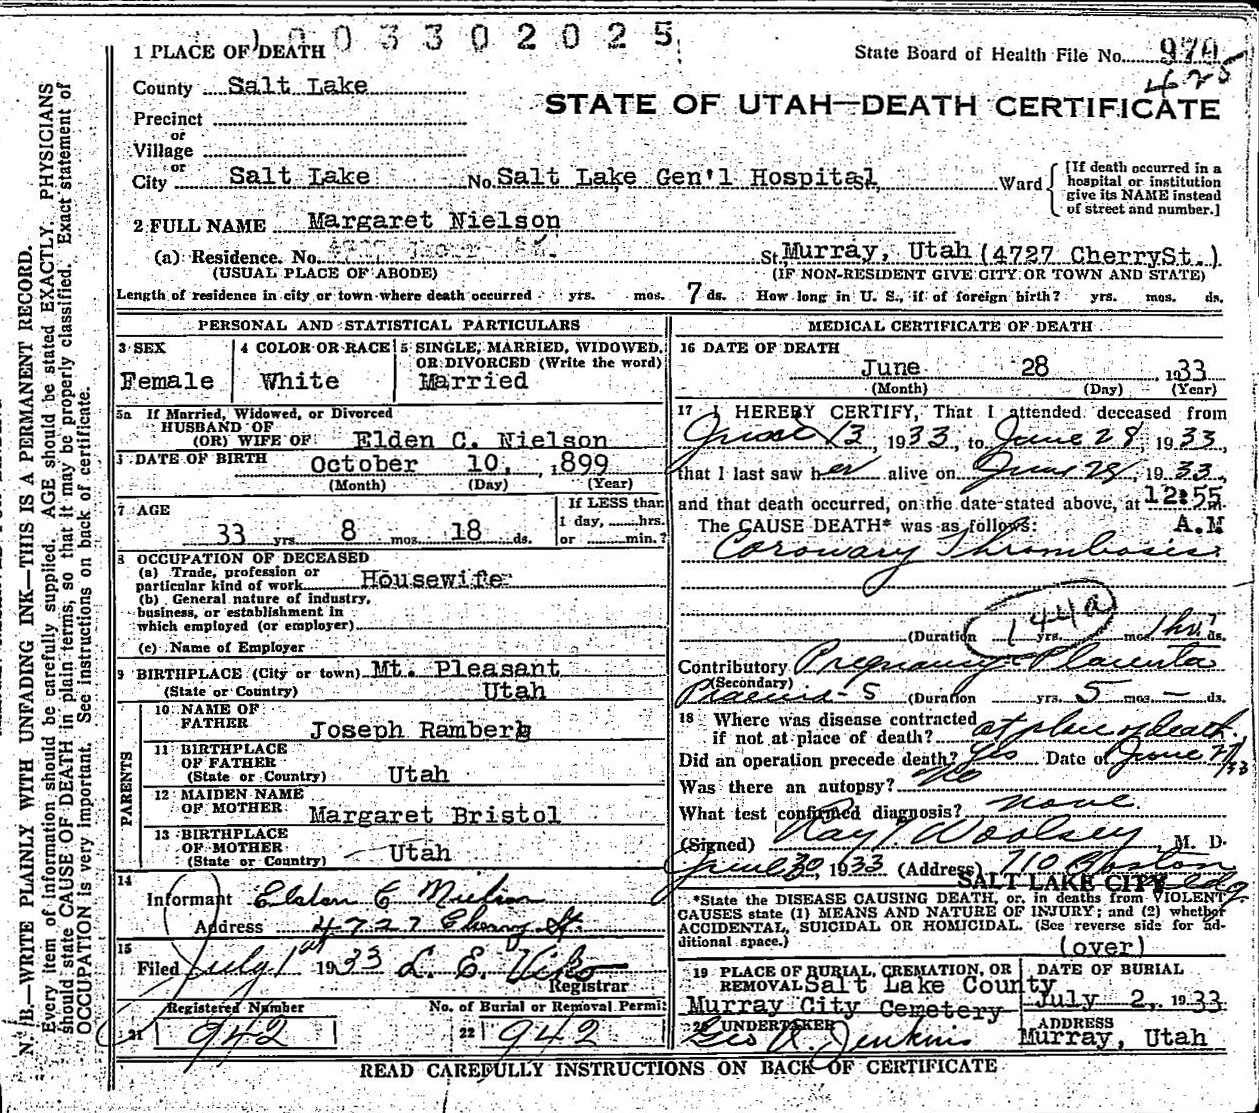 1003302025
1 PLACE OF DEATH
State Board of Health File No. 970
425
County Salt Lake
STATE OF UTAH—DEATH CERTIFICATE
Precinct
or
Village
or
City Salt Lake No. Salt Lake Gen'l Hospital Ward
[If death occurred in a
hospital or institution
give its NAME instead
of street and number.]
2 FULL NAME Margaret Nielson
(a) Residence. No. St. Murray, Utah (4727 CherrySt.)
(USUAL PLACE OF ABODE) (IF NON-RESIDENT GIVE CITY OR TOWN AND STATE)
Length of residence in city or town where death occurred yrs. mos. 7 ds. How long in U. S., if of foreign birth? yrs. mos. ds.
PERSONAL AND STATISTICAL PARTICULARS
3 SEX
Female
4 COLOR OR RACE
White
5 SINGLE, MARRIED, WIDOWED,
OR DIVORCED (Write the word)
Married
5a If Married, Widowed, or Divorced
HUSBAND OF
(OR) WIFE OF Elden C. Nielson
DATE OF BIRTH October 10, 1899
(Month) (Day) (Year)
7 AGE
33 yrs. 8 mos. 18 ds.
If LESS than
1 day, hrs.
or min.?
8 OCCUPATION OF DECEASED
(a) Trade, profession or
particular kind of work Housewife
(b) General nature of industry,
business, or establishment in
which employed (or employer)
(c) Name of Employer
9 BIRTHPLACE (City or town) Mt. Pleasant
(State or Country) Utah
PARENTS
10 NAME OF
FATHER Joseph Ramberg
11 BIRTHPLACE
OF FATHER
(State or Country) Utah
12 MAIDEN NAME
OF MOTHER Margaret Bristol
13 BIRTHPLACE
OF MOTHER
(State or Country) Utah
14
Informant Elden C Nielson
Address 4727 Cherry St.
15
Filed July 1st 1933 L. E. Viko
Registrar
Registered Number
21 942
No. of Burial or Removal Permit
22 942
MEDICAL CERTIFICATE OF DEATH
16 DATE OF DEATH
June 28 1933
(Month) (Day) (Year)
17 I HEREBY CERTIFY, That I attended deceased from
June 13, 1933, to June 28, 1933,
that I last saw her alive on June 28, 1933,
and that death occurred, on the date stated above, at 12:55 m.
The CAUSE DEATH* was as follows: A.M
Coronary Thrombosis
144a
(Duration yrs. mos. 1 hr. ds.
Contributory Pregnancy c Placenta
(Secondary)
Praevia-S (Duration yrs. 5 mos. — ds.
18 Where was disease contracted
if not at place of death? at place of death.
Did an operation precede death? Yes Date of June 27/33
Was there an autopsy? No
What test confirmed diagnosis? none.
(Signed) Ray T Woolsey M. D.
June 30, 1933 (Address) 710 Boston Bldg
SALT LAKE CITY
*State the DISEASE CAUSING DEATH, or, in deaths from VIOLENT
CAUSES state (1) MEANS AND NATURE OF INJURY; and (2) whether
ACCIDENTAL, SUICIDAL OR HOMICIDAL. (See reverse side for ad-
ditional space.)
(over)
19 PLACE OF BURIAL, CREMATION, OR
REMOVAL Salt Lake County
Murray City Cemetery
DATE OF BURIAL
July 2, 1933
20 UNDERTAKER
Geo A. Jenkins
ADDRESS
Murray, Utah
READ CAREFULLY INSTRUCTIONS ON BACK OF CERTIFICATE
N. B.—WRITE PLAINLY WITH UNFADING INK—THIS IS A PERMANENT RECORD.
Every item of information should be carefully supplied. AGE should be stated EXACTLY. PHYSICIANS
should state CAUSE OF DEATH in plain terms, so that it may be properly classified. Exact statement of
OCCUPATION is very important. See instructions on back of certificate.